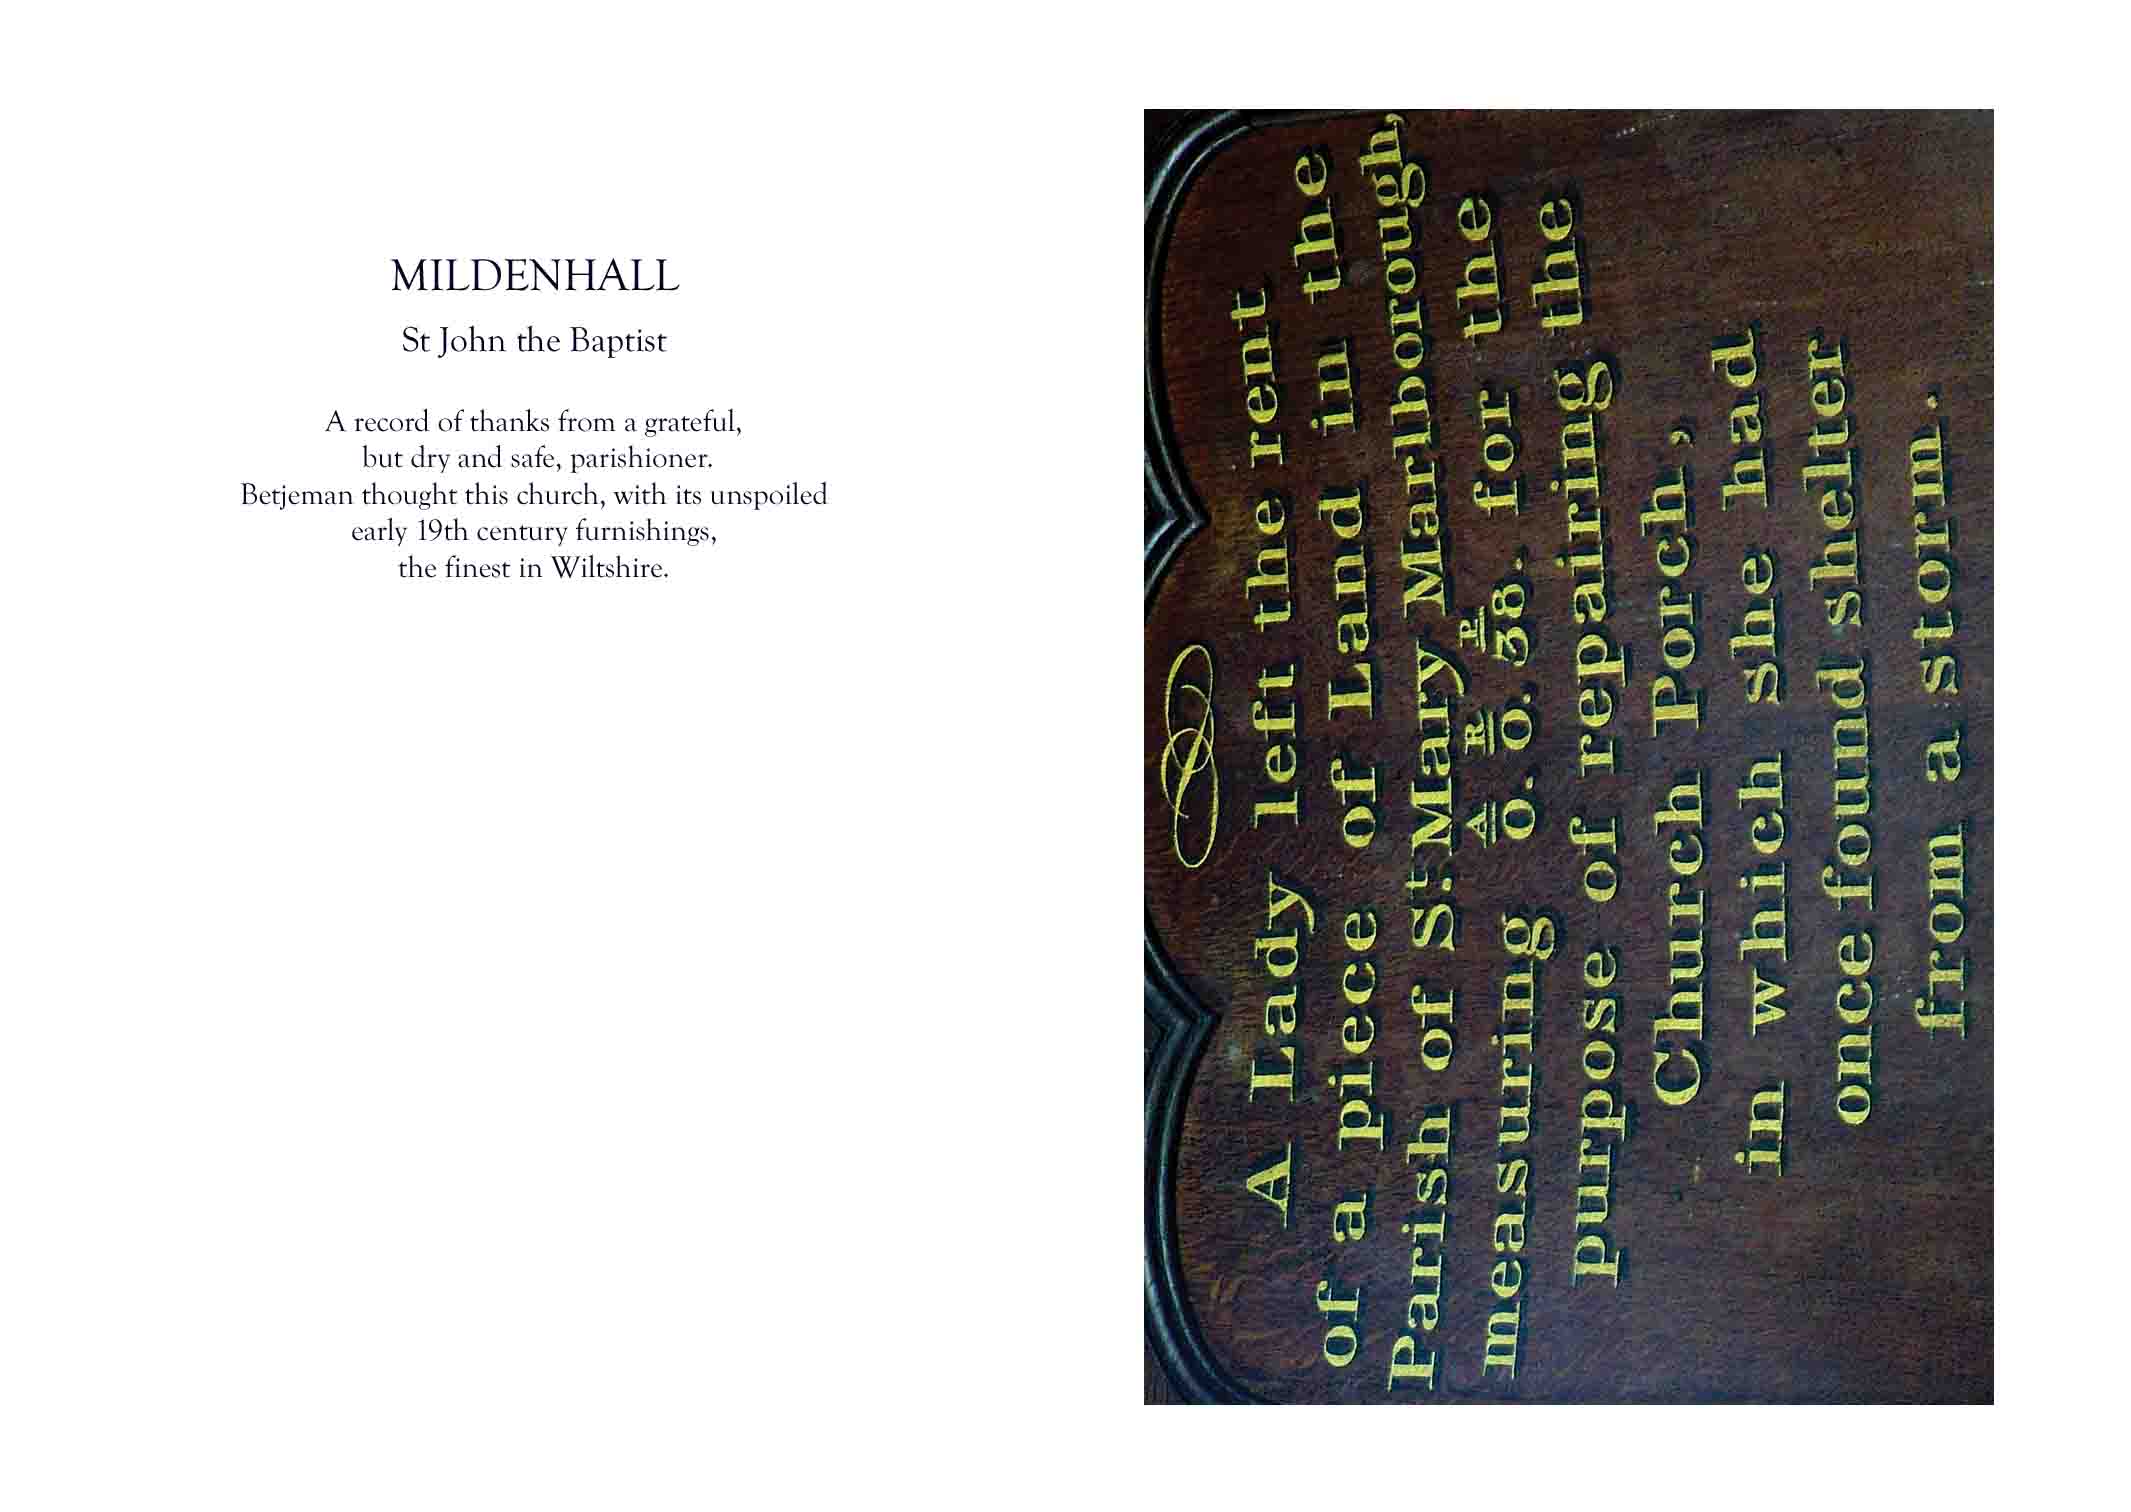 MILDENHALL
St John the Baptist
A record of thanks from a grateful,
but dry and safe, parishioner.
Betjeman thought this church, with its unspoiled
early 19th century furnishings,
the finest in Wiltshire.
A Lady left the rent
of a piece of Land in the
Parish of St. Mary Marlborough,
A R P
measuring 0. 0. 38. for the
purpose of repairing the
Church Porch,
in which she had
once found shelter
from a storm.